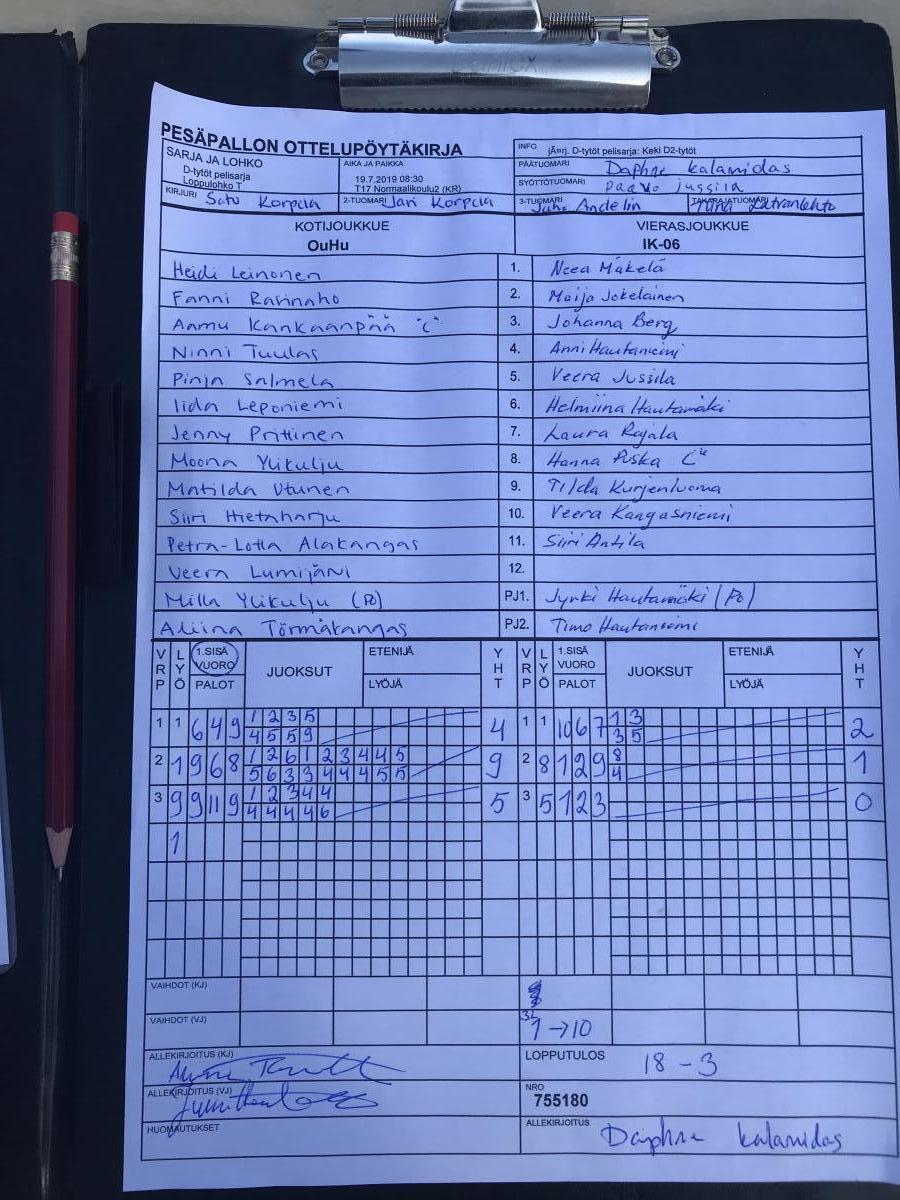 PESÄPALLON OTTELUPÖYTÄKIRJA
INFO jÄrj. D-tytöt pelisarja: Keki D2-tytöt
SARJA JA LOHKO
D-tytöt pelisarja
Loppulohko T
AIKA JA PAIKKA
19.7.2019 08:30
T17 Normaalikoulu2 (KR)
PÄÄTUOMARI Daphne kalamidas
SYÖTTÖTUOMARI paavo jussila
KIRJURI Satu Korpela
2-TUOMARI Jari Korpela
3-TUOMARI Andelin
TAKARAJATUOMARI
KOTIJOUKKUE
OuHu
VIERASJOUKKUE
IK-06
Heidi Leinonen 1. Neea Mäkelä
Fanni Ravinaho 2. Maija Jokelainen
Aamu Kankaanpää "C" 3. Johanna Berg
Ninni Tuulas 4. Anni Hautaniemi
Pinja Salmela 5. Veera Jussila
Iida Leponiemi 6. Helmiina Hautamäki
Jenny Prittinen 7. Laura Rajala
Moona Ylikulju 8. Hanna Puska C"
Matilda Utunen 9. Tilda Kurjenluoma
Siiri Hietaharju 10. Veera Kangasniemi
Petra-Lotta Alakangas 11. Siiri Antila
Veera Lumijärvi 12.
Milla Ylikulju (PJ) PJ1. Jyrki Hautamäki (PJ)
Aliina Törmäkangas PJ2. Timo Hautaniemi
VRP LYÖ 1.SISÄ VUORO PALOT JUOKSUT ETENIJÄ LYÖJÄ YHT VRP LYÖ 1.SISÄ VUORO PALOT JUOKSUT ETENIJÄ LYÖJÄ YHT
1 1 6 4 9 1 2 3 5 4 1 1 10 6 7 1 3 2
4 5 5 9 3 5
2 1 9 6 8 1 2 6 1 2 3 4 4 5 9 2 8 12 9 8 1
5 6 3 3 4 4 4 5 5 4
3 9 9 11 9 1 2 3 4 4 5 3 5 1 2 3 0
4 4 4 4 6
1
VAIHDOT (KJ)
VAIHDOT (VJ) 1 → 10
ALLEKIRJOITUS (KJ)
LOPPUTULOS 18 - 3
ALLEKIRJOITUS (VJ)
NRO
755180
HUOMAUTUKSET
ALLEKIRJOITUS Daphne kalamidas